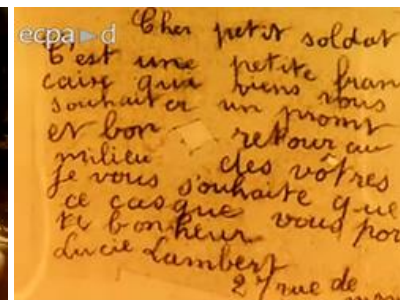 ecpa d
Cher petit soldat
C'est une petite fran
caise qui viens vous
souhaiter un promt
et bon retour au
milieu des vôtres
je vous souhaite que
ce casque vous por
te bonheur
Lucie Lambert
27 rue de